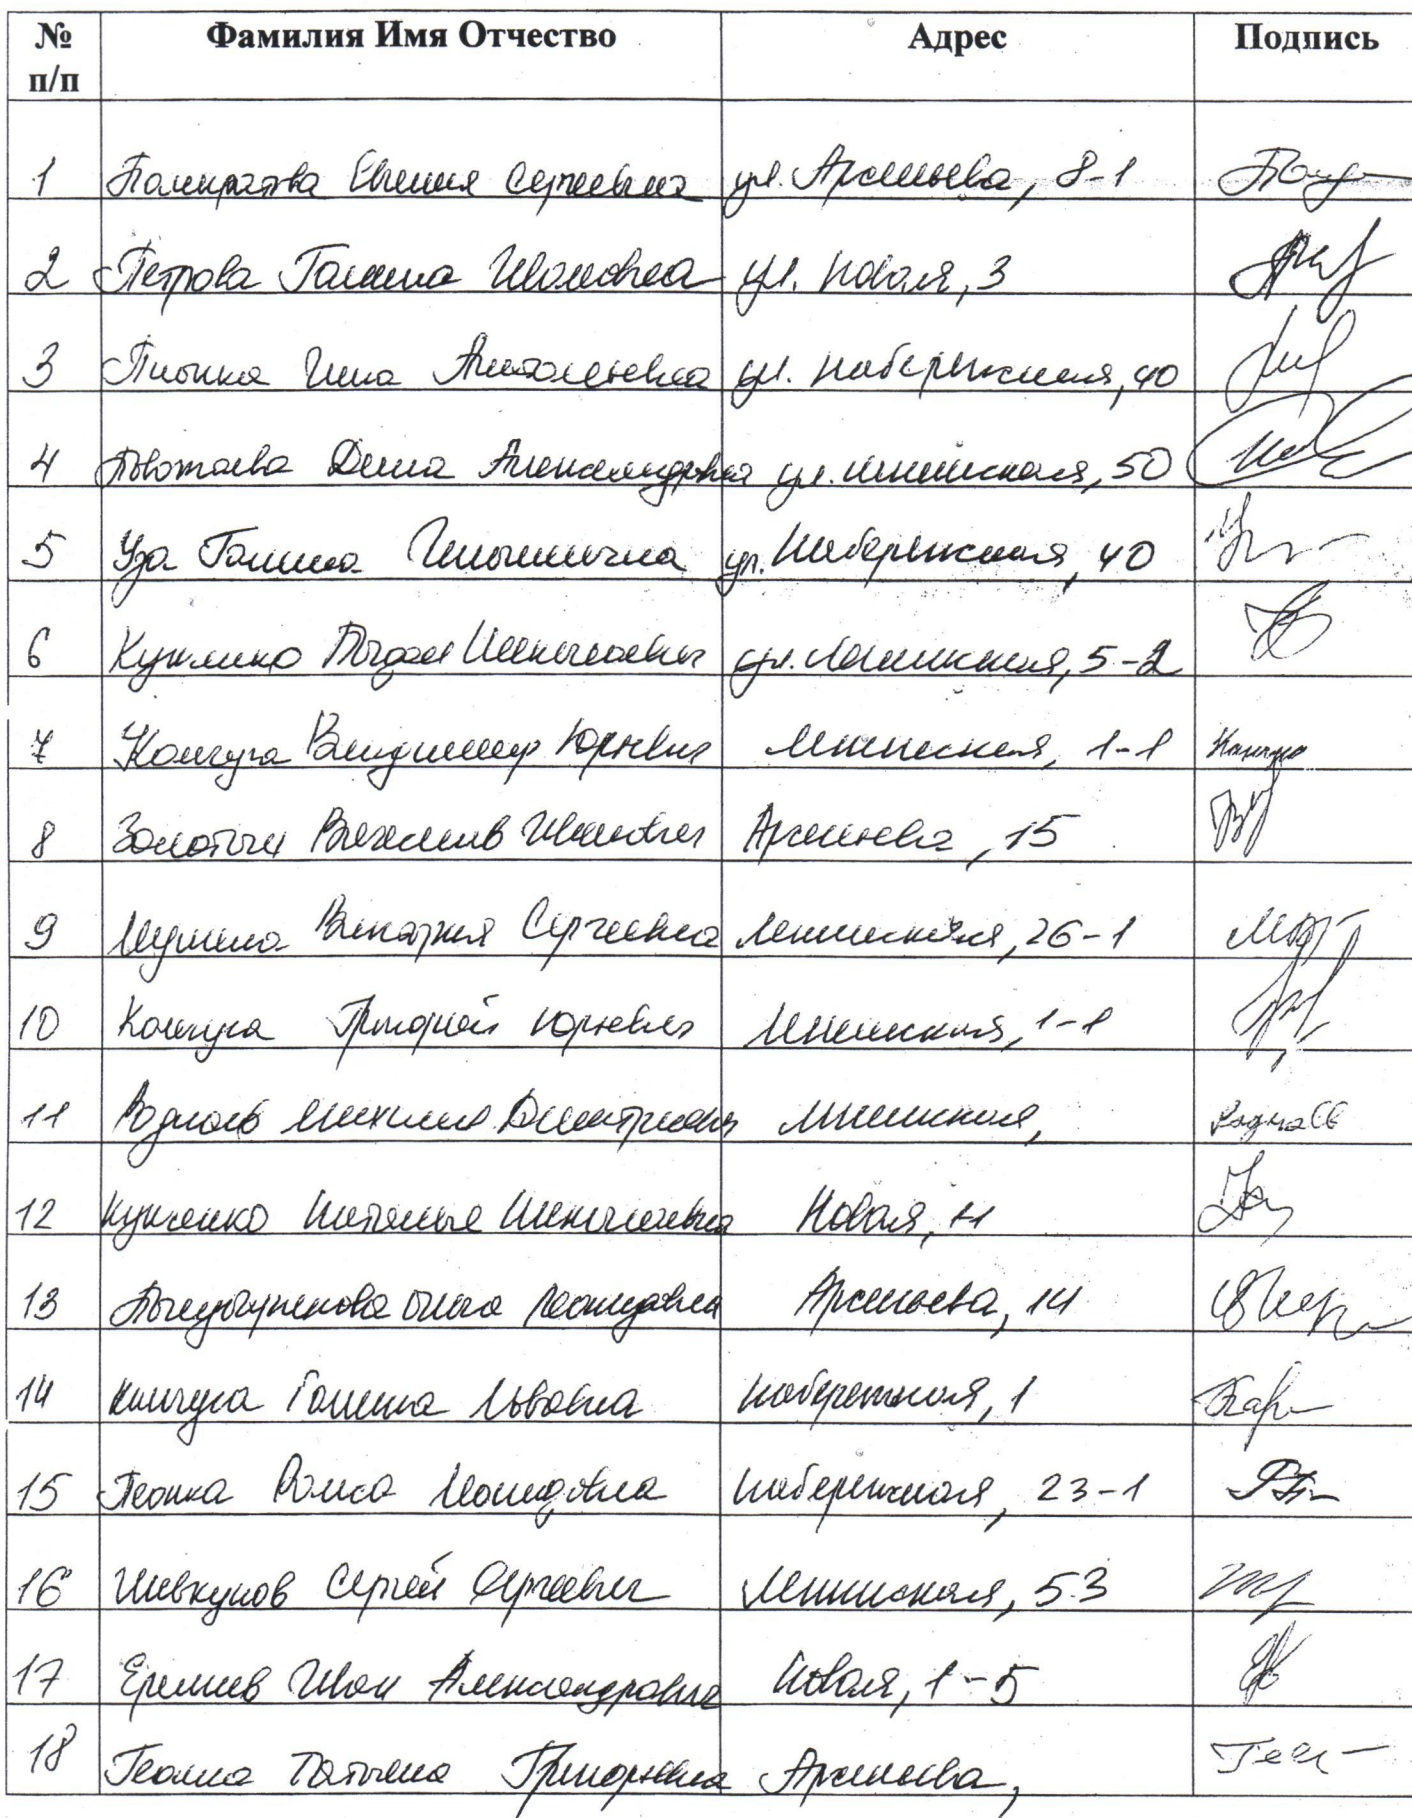 № п/п Фамилия Имя Отчество Адрес Подпись
1 Панкратова Евгения Сергеевна ул. Арсеньева, 8-1
2 Петрова Галина Ивановна ул. Новая, 3
3 Пионка Инна Анатольевна ул. Набережная, 40
4 Дина Александровна ул. Ленинская, 50
5 Уза Галина Ильинична ул. Набережная, 40
6 Кукленко Богдан ул. Ленинская, 5-2
7 Канчуга Владимир Юрьевич Ленинская, 1-1 Канчуга
8 Вячеслав Иванович Арсеньева, 15
9 Виктория Сергеевна Ленинская, 26-1
10 Канчуга Григорий Юрьевич Ленинская, 1-1
11 Михаил Дмитриевич Ленинская,
12 Кукленко Наталья Новая, 11
13 Ольга Леонидовна Арсеньева, 14
14 Канчуга Галина Львовна Набережная, 1
15 Геонка Леонидовна Набережная, 23-1
16 Шевкунов Сергей Сергеевич Ленинская, 53
17 Еремеев Иван Александрович Новая, 1-5
18 Татьяна Григорьевна Арсеньева,